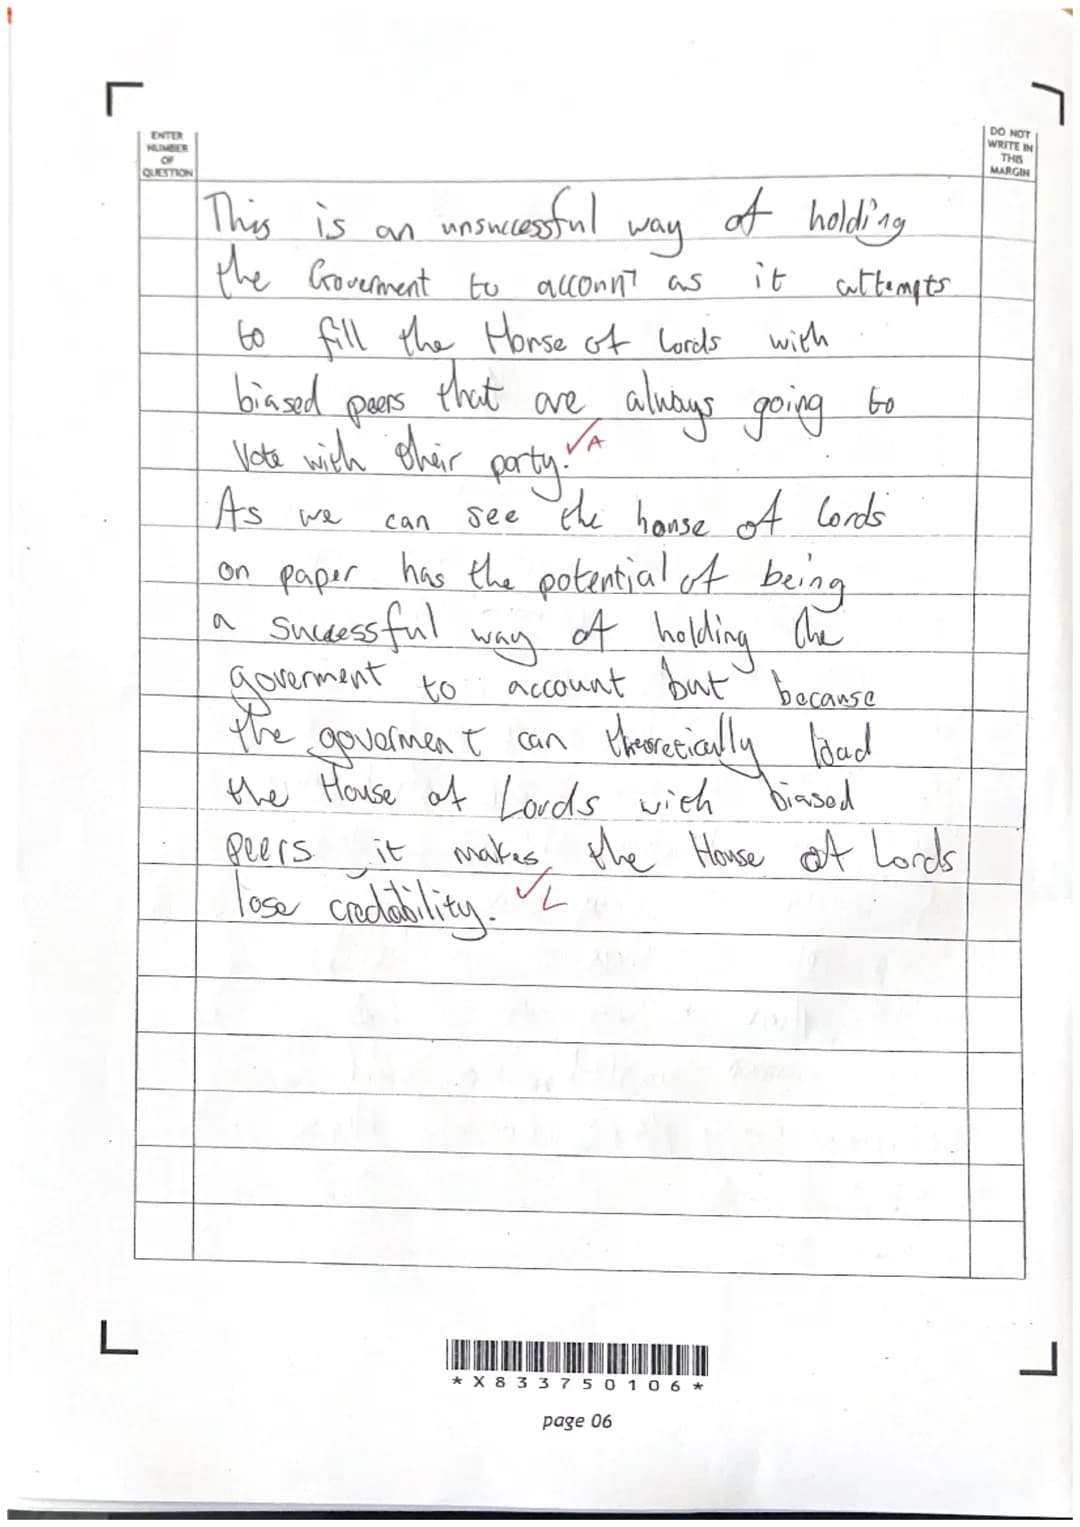 ENTER
NUMBER
OF
QUESTION
DO NOT
WRITE IN
THIS
MARGIN
This is an unsuccessful way of holding
the Goverment to account as it attempts
to fill the House of Lords with
biased peers that are always going to
Vote with their party. ✓A
As we can see the house of Lords
on paper has the potential of being
a successful way of holding the
goverment to account but because
the goverment can theoretically load
the House of Lords with biased
peers it makes the House of Lords
lose credability. ✓L
* X 8 3 3 7 5 0 1 0 6 *
page 06